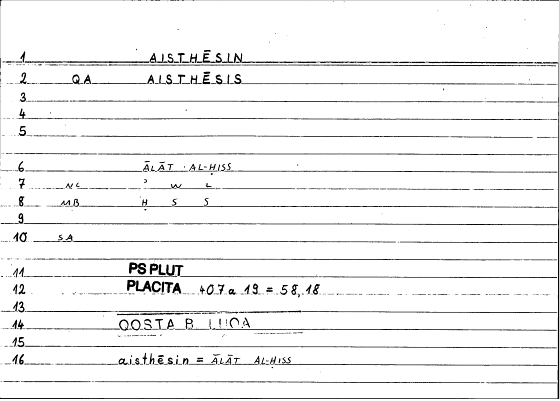 1 AISTHĒSIN
2 QA AISTHĒSIS
3
4
5
6 ĀLĀT AL-ḤISS
7 NC ʾ W L
8 MB Ḥ S S
9
10 SA
11 PS PLUT
12 PLACITA 407a 19 = 58,18
13
14 QOSTA B. LUQA
15
16 aisthēsin = ĀLĀT AL-ḤISS